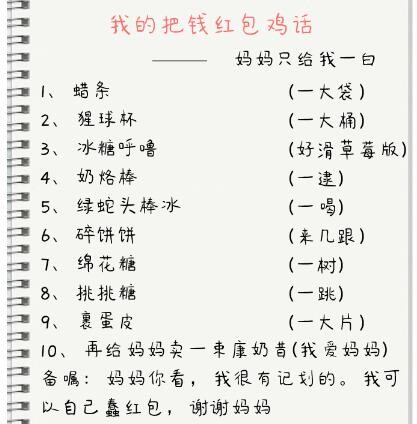 我的把钱红包鸡话
—— 妈妈只给我一白
1、 蜡条 (一大袋)
2、 猩球杯 (一大桶)
3、 冰糖呼噜 (好滑草莓版)
4、 奶烙棒 (一逮)
5、 绿蛇头棒冰 (一喝)
6、 碎饼饼 (来几跟)
7、 绵花糖 (一树)
8、 挑挑糖 (一跳)
9、 裹蛋皮 (一大片)
10、 再给妈妈卖一束康奶昔(我爱妈妈)
备嘱： 妈妈你看，我很有记划的。我可
以自己蠢红包，谢谢妈妈